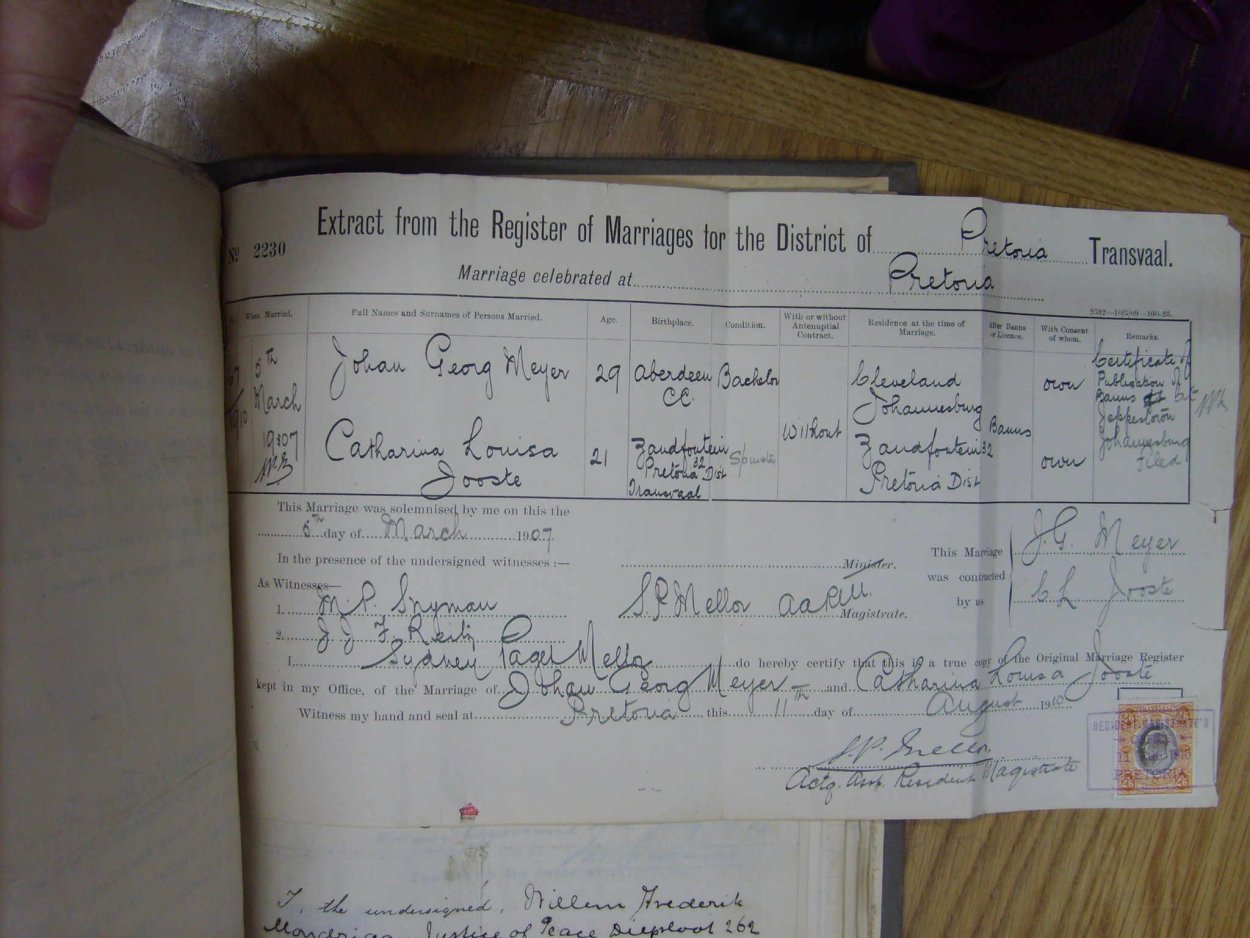 Nº 2230
Extract from the Register of Marriages for the District of Pretoria Transvaal.
Marriage celebrated at Pretoria
2592—10/5/09—100-25.
When Married. Full Names and Surnames of Persons Married. Age. Birthplace. Condition. With or without Antenuptial Contract. Residence at the time of Marriage. After Banns or Licence. With Consent of whom. Remarks.
5th March 1907
Johan Georg Meyer 29 Aberdeen CC. Bachelor Cleveland Johannesburg own
Catharina Louisa Jooste 21 Zandfontein 32 Pretoria Dist Transvaal Spinster Without Zandfontein 32 Pretoria Dist Banns own
Certificate of
Publication of
Banns at
Jeppestown
Johannesburg
Filed
This Marriage was solemnised by me on this the
5th day of March 1907
In the presence of the undersigned witnesses :— Minister.
As Witnesses—
1. M. P. Snyman S. P. Mellor AaRM. Magistrate.
2. J J F. Reitz
This Marriage was contracted by us
J. G. Meyer
C L Jooste
I, Sydney Paget Mellor do hereby certify that this is a true copy of the Original Marriage Register
kept in my Office, of the Marriage of Johan Georg Meyer and Catharina Louisa Jooste
Witness my hand and seal at Pretoria this 11th day of August 1910
S. P. Mellor
Actg. Asst. Resident Magistrate
RESIDENT MAGISTRATE'S
PRETORIA
I, the undersigned, Willem Frederik
Justice of Peace Diepsloot 262